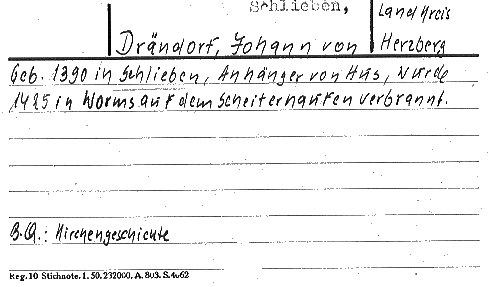 Schlieben,
Landkreis
Drändorf, Johann von
Herzberg
Geb. 1390 in Schlieben, Anhänger von Hus, wurde
1425 in Worms auf dem Scheiterhaufen verbrannt.
B.Q.: Kirchengeschichte
Reg. 10 Stichnote. 1. 50. 232000. A. 803. S. 4062